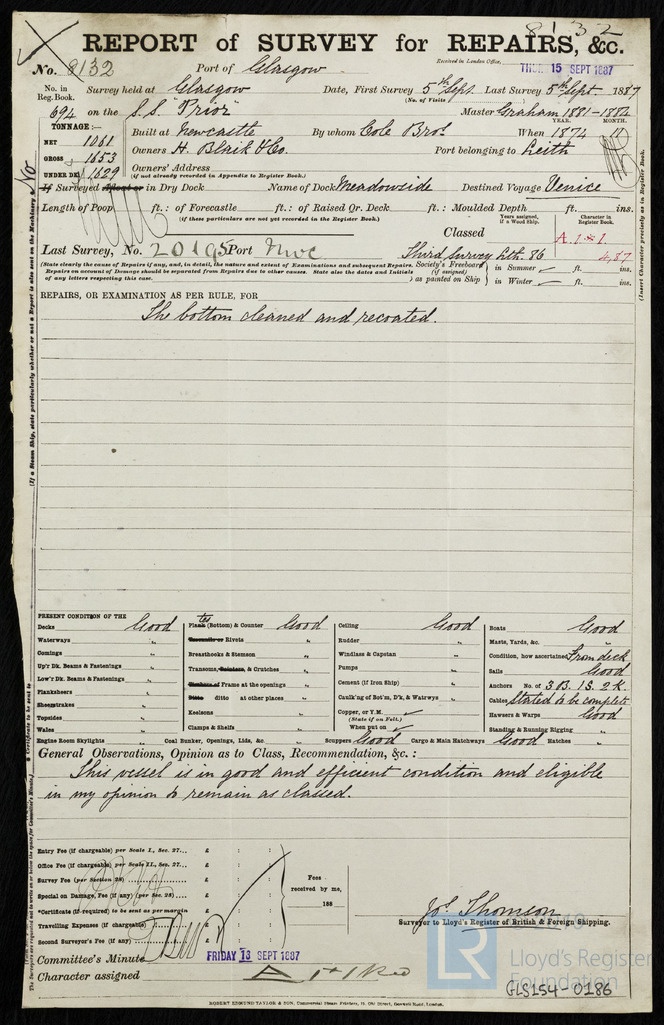 8132
REPORT of SURVEY for REPAIRS, &c.
Received in London Office,
THUR 15 SEPT 1887
No. 8132 Port of Glasgow
No. in Reg. Book. Survey held at Glasgow Date, First Survey 5th Sept. Last Survey 5th Sept 1887
(No. of Visits
694 on the S.S. "Prior" Master Graham 1881-1884
YEAR. MONTH.
TONNAGE:—
NET 1061
GROSS 1653
UNDER DK. 1629
Built at Newcastle By whom Cole Bros. When 1874 11
Owners H. Blaik & Co. Port belonging to Leith
Owners' Address
(if not already recorded in Appendix to Register Book.)
If Surveyed Afloat or in Dry Dock Name of Dock Meadowside Destined Voyage Venice
Length of Poop ft.: of Forecastle ft.: of Raised Qr. Deck ft.: Moulded Depth ft. ins.
(if these particulars are not yet recorded in the Register Book.)
Years assigned, if a Wood Ship.
Character in Register Book.
Classed A.1*1.
4,87
Last Survey, No. 20195 Port Nwc Third Survey Lth. 86
Society's Freeboard (if assigned) as painted on Ship
in Summer ft. ins.
in Winter ft. ins.
(State clearly the cause of Repairs if any, and, in detail, the nature and extent of Examinations and subsequent Repairs. Repairs on account of Damage should be separated from Repairs due to other causes. State also the dates and Initials of any letters respecting this case.
REPAIRS, OR EXAMINATION AS PER RULE, FOR
The bottom cleaned and recoated.
PRESENT CONDITION OF THE
Decks Good
Waterways "
Comings "
Up'r Dk. Beams & Fastenings "
Low'r Dk. Beams & Fastenings "
Planksheers "
Sheerstrakes "
Topsides "
Wales "
Engine Room Skylights "
Plates (Bottom) & Counter Good
Treenails or Rivets "
Breasthooks & Stemson "
Transoms, Pointers, & Crutches "
Timbers of Frame at the openings "
Ditto ditto at other places "
Keelsons "
Clamps & Shelfs "
Coal Bunker, Openings, Lids, &c. "
Ceiling Good
Rudder "
Windlass & Capstan "
Pumps "
Cement (if Iron Ship) "
Caulk'ng of Bot'm, D'k, & Waterwys "
Copper, or Y.M.
(State if on Felt.)
When put on
Scuppers Good Cargo & Main Hatchways Good Hatches "
Boats Good
Masts, Yards, &c. "
Condition, how ascertained From deck
Sails Good
Anchors No. of 3 B. 1 S. 2 K.
Cables Stated to be complete
Hawsers & Warps Good
Standing & Running Rigging "
General Observations, Opinion as to Class, Recommendation, &c.:
This vessel is in good and efficient condition and eligible
in my opinion to remain as classed.
Entry Fee (if chargeable) per Scale I., Sec. 27... £ : :
Office Fee (if chargeable) per Scale II., Sec. 27... £ : :
Survey Fee (per Section 28) £ : :
Special on Damage, Fee (if any) (per Sec. 28) £ : :
Certificate (if required) to be sent as per margin £ : :
Travelling Expenses (if chargeable) £ : :
Second Surveyor's Fee (if any) £ : :
Fees received by me,
188
Jos. Thomson
Surveyor to Lloyd's Register of British & Foreign Shipping.
Committee's Minute FRIDAY 16 SEPT 1887
Character assigned A 1*1
LR
Lloyd's Register Foundation
GLS154-0186
ROBERT EDMUND TAYLOR & SON, Commercial Steam Printers, 19, Old Street, Goswell Road, London.